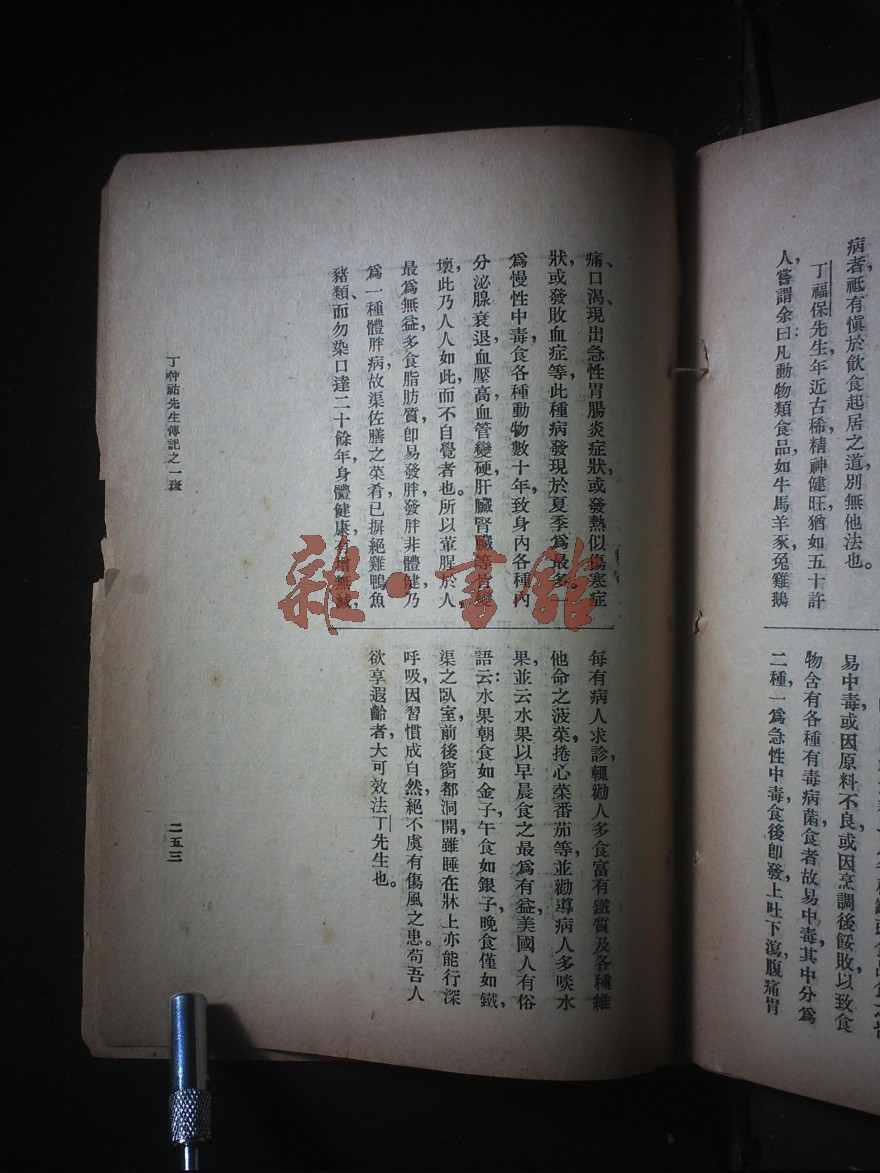 病者祗有愼於飲食起居之道，別無他法也。
丁福保先生，年近古稀，精神健旺，猶如五十許
人，嘗謂余曰：凡動物類食品，如牛馬羊豕兔雞鵝
易中毒，或因原料不良，或因烹調後餒敗，以致食
物含有各種有毒病菌，食者故易中毒，其中分爲
二種，一爲急性中毒，食後卽發上吐下瀉，腹痛胃
痛、口渴、現出急性胃腸炎症狀，或發熱似傷寒症
狀，或發敗血症等，此種病發現於夏季爲最多。一
爲慢性中毒，食各種動物數十年，致身內各種內
分泌腺衰退，血壓高，血管變硬，肝臟腎臟等皆變
壞，此乃人人如此，而不自覺者也。所以葷腥於人，
最爲無益，多食脂肪質，卽易發胖，發胖非體健，乃
爲一種體胖病，故渠佐膳之菜肴，已摒絕雞鴨魚
豬類，而勿染口，達二十餘年，身體健康，有增無減，
每有病人求診，輒勸人多食富有鐵質及各種維
他命之菠菜、捲心菜、番茄等，並勸導病人多啖水
果，並云水果以早晨食之，最爲有益，美國人有俗
語云：水果朝食如金子，午食如銀子，晚食僅如鐵，
渠之臥室，前後窗都洞開，雖睡在牀上，亦能行深
呼吸，因習慣成自然，絕不虞有傷風之患。苟吾人
欲享遐齡者，大可效法丁先生也。
丁仲祜先生傳記之一斑
二五三
雜·書館